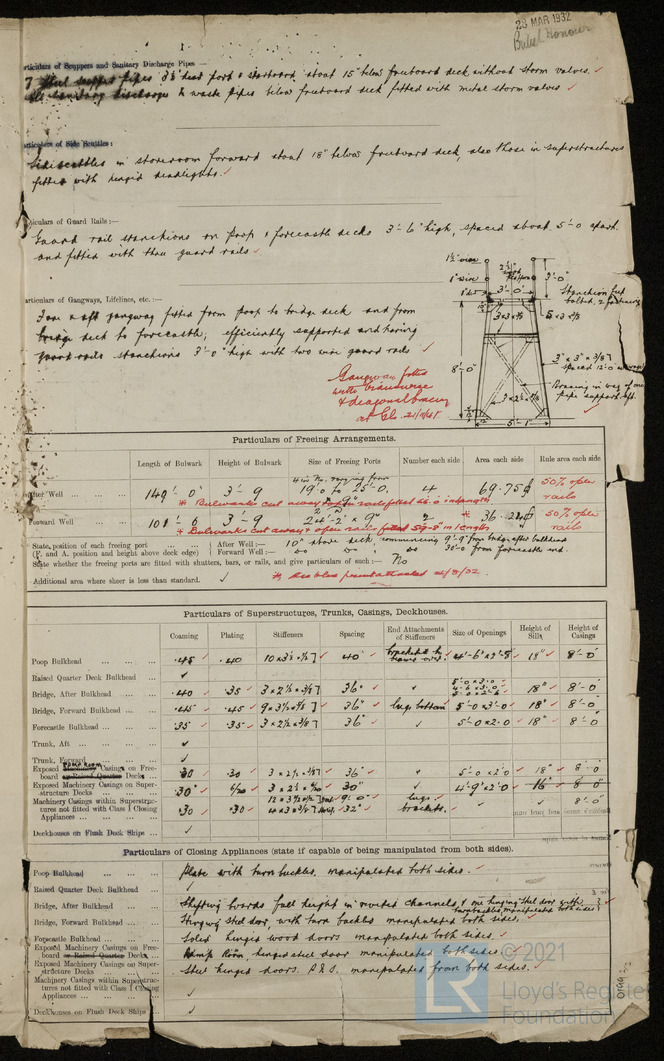 23 MAR 1932
Particulars of Scuppers and Sanitary Discharge Pipes —
7 Steel scupper pipes 3½" dead port & starboard about 15" below freeboard deck without storm valves. ✓
sanitary discharge & waste pipes below freeboard deck fitted with metal storm valves ✓
Particulars of Side Scuttles :
Sidescuttles in storeroom forward about 18" below freeboard deck, also those in superstructures
fitted with hinged deadlights. ✓
Particulars of Guard Rails :—
Guard rail stanchions on poop & forecastle decks 3'-6" high, spaced about 5'-0 apart.
and fitted with three guard rails ✓
Particulars of Gangways, Lifelines, etc. :—
Fore & aft gangway fitted from poop to bridge deck and from
bridge deck to forecastle, efficiently supported and having
guard rails stanchions 3'-0" high with two wire guard rails ✓
1½" wire
1" wire
3'-0"
3'-0"
Stanchion feet
bolted, 2 fastenings
8'-0"
3" x 3" x 3/8"
spaced 12'-0
Bracing in way of one
pipe support
5'-1"
12"
Gangway fitted
with transverse
& diagonal bracing
at Glo.
Particulars of Freeing Arrangements.
Length of Bulwark Height of Bulwark Size of Freeing Ports Number each side Area each side Rule area each side
After Well 149'-0" 3'-9 4 in No. varying from 19'-0 to 25'-0, x 9" 4 69.75 50% open rails
* Bulwarks cut away & open rails fitted 56'-0 in length
Forward Well 101'-6 3'-9 24'-2" x 9" 2 * 36.2 50% open rails
* Bulwarks cut away & open rails fitted 59'-8" in length
State position of each freeing port (F. and A. position and height above deck edge) After Well :— 10" above deck, commencing 9'-9" from bridge after bulkhead
Forward Well :— do do 30'-0 from forecastle end.
State whether the freeing ports are fitted with shutters, bars, or rails, and give particulars of such :— No
Additional area where sheer is less than standard. ✓
Particulars of Superstructures, Trunks, Casings, Deckhouses.
Coaming Plating Stiffeners Spacing End Attachments of Stiffeners Size of Openings Height of Sills Height of Casings
Poop Bulkhead .45 ✓ .40 40" 4'-6" x 2'-5 ✓ 18" ✓ 8'-0"
Raised Quarter Deck Bulkhead ✓
Bridge, After Bulkhead .40 ✓ .35 ✓ 3 x 2½ x 3/8 36" ✓ ✓ 5'-0 x 3'-0 18" ✓ 8'-0
Bridge, Forward Bulkhead .45 ✓ .45 ✓ 36" ✓ lugs bottom 5'-0 x 3'-0 ✓ 18" ✓ 8'-0
Forecastle Bulkhead .35 ✓ .35 ✓ 3 x 2½ x 3/8 36" ✓ ✓ 5'-0 x 2.0 ✓ 18" ✓ 8'-0
Trunk, Aft ✓
Trunk, Forward ✓
Exposed Machinery Casings on Freeboard or Raised Quarter Decks .30 .30 ✓ 3 x 2½ x 3/8 36" ✓ ✓ 5'-0 x 2'0 18" ✓ 8'-0
Exposed Machinery Casings on Superstructure Decks .30" ✓ 30" ✓ 4'-9" x 2'-0 ✓ 16" ✓ 8'-0"
Machinery Casings within Superstructures not fitted with Class I Closing Appliances .30 ✓ .30 9'-0" 32" lugs brackets. ✓ ✓ 8'-0
Deckhouses on Flush Deck Ships ✓
Particulars of Closing Appliances (state if capable of being manipulated from both sides).
Poop Bulkhead Plate with turn buckles, manipulated both sides. ✓
Raised Quarter Deck Bulkhead ✓
Bridge, After Bulkhead Shifting boards full height in riveted channels, & one hinged steel door with turnbuckles, manipulated both sides ✓
Bridge, Forward Bulkhead Hinged steel door, with turn buckles manipulated both sides. ✓
Forecastle Bulkhead Solid hinged wood doors manipulated both sides. ✓
Exposed Machinery Casings on Freeboard or Raised Quarter Decks Pump Room, hinged steel door manipulated both sides.
Exposed Machinery Casings on Superstructure Decks Steel hinged doors P.&S. manipulated from both sides. ✓
Machinery Casings within Superstructures not fitted with Class I Closing Appliances ✓
Deckhouses on Flush Deck Ships ✓
LR
© 2021
Lloyd's Register
Foundation